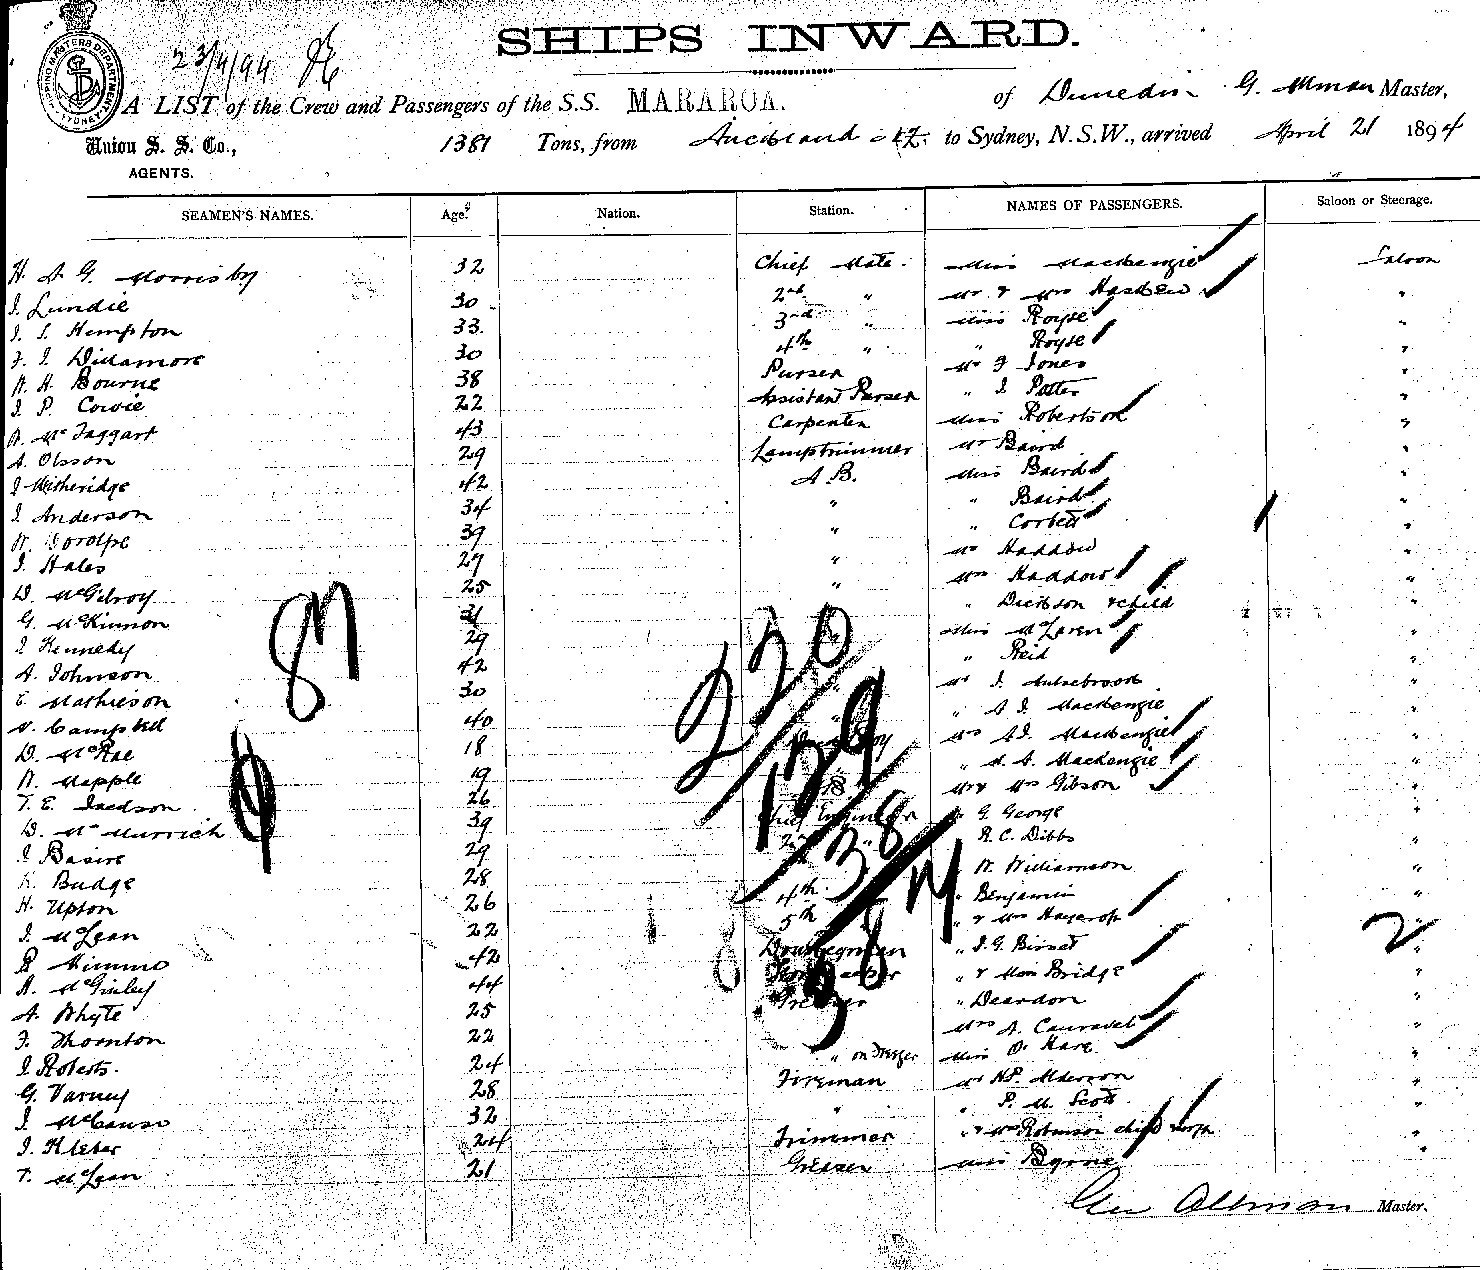 SHIPS INWARD.
23/4/94
A LIST of the Crew and Passengers of the S.S. MARAROA. of Dunedin G. Allman Master,
Union S. S. Co., 1381 Tons, from Auckland N.Z. to Sydney, N.S.W., arrived April 21 1894
AGENTS.
SEAMEN'S NAMES. Age. Nation. Station. NAMES OF PASSENGERS. Saloon or Steerage.
H. A. G. Morrisby 32 Chief Mate. Miss Mackenzie Saloon
J. Lundie 30 2nd " Mr & Mrs "
J. S. Hempton 33. 3rd " Miss Royse "
F. J. Dillamore 30 4th " " Royse "
W. H. Bourne 38 Purser Mr F Jones "
J. P. Cowie 22 Assistant Purser " J. Potter "
W. McTaggart 43 Carpenter Miss Robertson "
A. Olsson 29 Lamptrimmer Mr Baird "
J Witheridge 42 A.B. Miss Baird "
J. Anderson 34 " " Baird "
W. 39 " " Corbett "
J. Hales 27 " Mr Haddow "
D. McGilroy 25 " Mrs Haddow "
G. McKinnon 31 " Dickson & child "
J Kennedy 29 Miss McLaren "
A. Johnson 42 " Reid "
E. Mathieson 30 Mr J. "
Campbell 40 " A J. Mackenzie "
D. McRae 18 Boy Mrs A J. Mackenzie "
W. Mapple 19 " A. Mackenzie "
T. E. Jackson 26 Mr & Mrs Gibson "
D. McMurrich 39 Chief Engineer " G. George "
J Basire 29 2nd " " R. C. Dibbs "
Budge 28 " W. Williamson "
H. Upton 26 4th " Benjamin "
J. McLean 22 5th " & Mrs Haycroft "
Nimmo 42 Donkeyman " J. G. "
A. McGinley 44 Storekeeper " & Miss Bridge "
A. Whyte 25 Greaser " Deardon "
F. Thornton 22 Mrs A. "
J. Roberts. 24 " Miss O'Hare "
G. Varney 28 Fireman Mr "
J. 32 " " P. M. Scott "
J. Kleber 24 Trimmer " & Mrs Robinson "
T. McLean 21 Greaser Miss Byrne
87
220
139
38
2
Geo Allman Master.